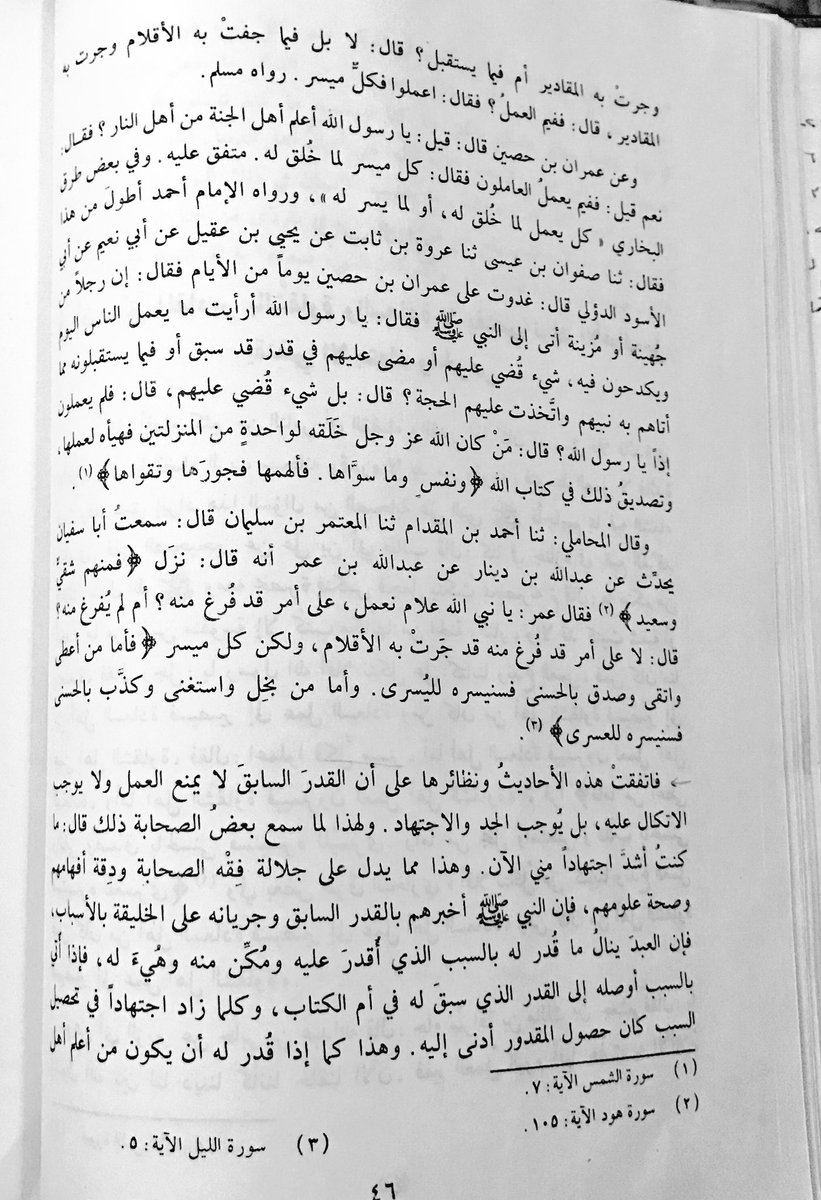 وجرتْ به المقادير أم فيما يستقبل؟ قال: لا بل فيما جفتْ به الأقلام وجرت به
المقادير، قال: ففيم العملُ؟ فقال: اعملوا فكلٌّ ميسر. رواه مسلم.
وعن عمران بن حصين قال: قيل: يا رسول الله أعلم أهل الجنة من أهل النار؟ فقال:
نعم قيل: ففيم يعملُ العاملون فقال: كل ميسر لما خُلق له. متفق عليه. وفي بعض طرق
البخاري «كل يعمل لما خُلق له، أو لما يسر له»، ورواه الإمام أحمد أطولَ من هذا
فقال: ثنا صفوان بن عيسى ثنا عروة بن ثابت عن يحيى بن عقيل عن أبي نعيم عن أبي
الأسود الدؤلي قال: غدوت على عمران بن حصين يوماً من الأيام فقال: إن رجلاً من
جُهينة أو مُزينة أتى إلى النبي ﷺ فقال: يا رسول الله أرأيت ما يعمل الناس اليوم
ويكدحون فيه، شيء قُضي عليهم أو مضى عليهم في قدر قد سبق أو فيما يستقبلونه مما
أتاهم به نبيهم واتَّخذت عليهم الحجة؟ قال: بل شيء قُضي عليهم، قال: فلم يعملون
إذاً يا رسول الله؟ قال: مَنْ كان الله عز وجل خَلَقه لواحدةٍ من المنزلتين فهيأه لعملها،
وتصديقُ ذلك في كتاب الله ﴿ونفسٍ وما سوَّاها. فألهمها فجورَها وتقواها﴾ (١).
وقال المُحاملي: ثنا أحمد بن المقدام ثنا المعتمر بن سليمان قال: سمعتُ أبا سفيان
يحدّث عن عبدالله بن دينار عن عبدالله بن عمر أنه قال: نزَل ﴿فمنهم شقيٌّ
وسعيد﴾ (٢) فقال عمر: يا نبي الله علام نعمل، على أمر قد فُرغ منه؟ أم لم يُفرغ منه؟
قال: لا على أمر قد فُرغ منه قد جَرَتْ به الأقلام، ولكن كل ميسر ﴿فأما من أعطى
واتقى وصدق بالحسنى فسنيسره لليُسرى. وأما من بخِل واستغنى وكذَّب بالحسنى
فسنيسره للعسرى﴾ (٣).
فاتفقتْ هذه الأحاديثُ ونظائرها على أن القدرَ السابقَ لا يمنع العمل ولا يوجب
الاتكال عليه، بل يُوجب الجد والاجتهاد. ولهذا لما سمع بعضُ الصحابة ذلك قال: ما
كنتُ أشدَّ اجتهاداً مِني الآن. وهذا مما يدل على جلالة فِقْه الصحابة ودِقة أفهامهم
وصحة علومهم، فإن النبي ﷺ أخبرهم بالقدر السابق وجريانه على الخليقة بالأسباب،
فإن العبدَ ينالُ ما قُدر له بالسبب الذي أُقدرَ عليه ومُكِّن منه وهُيءَ له، فإذا أتى
بالسبب أوصله إلى القدر الذي سبقَ له في أم الكتاب، وكلما زاد اجتهاداً في تحصيل
السبب كان حصول المقدور أدنى إليه. وهذا كما إذا قُدر له أن يكون من أعلم أهل
(١) سورة الشمس الآية: ٧.
(٢) سورة هود الآية: ١٠٥.
(٣) سورة الليل الآية: ٥.
٤٦